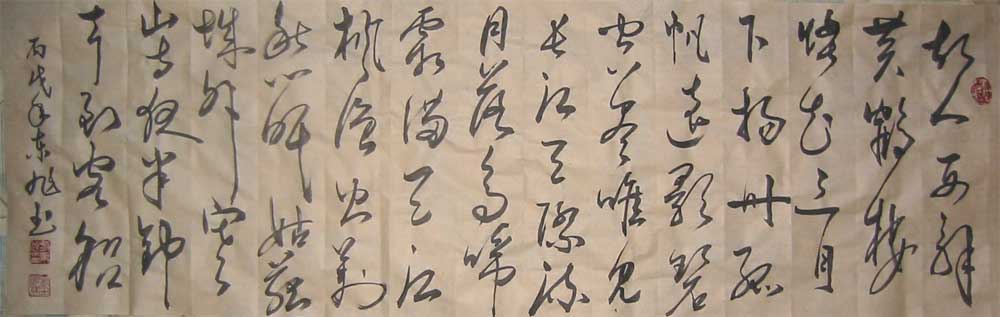 故人西辞
黄鹤楼
烟花三月
下扬州孤
帆远影碧
空尽唯见
长江天际流
月落乌啼
霜满天江
枫渔火对
愁眠姑苏
城外寒
山寺夜半钟
声到客船
丙戌年东旭书